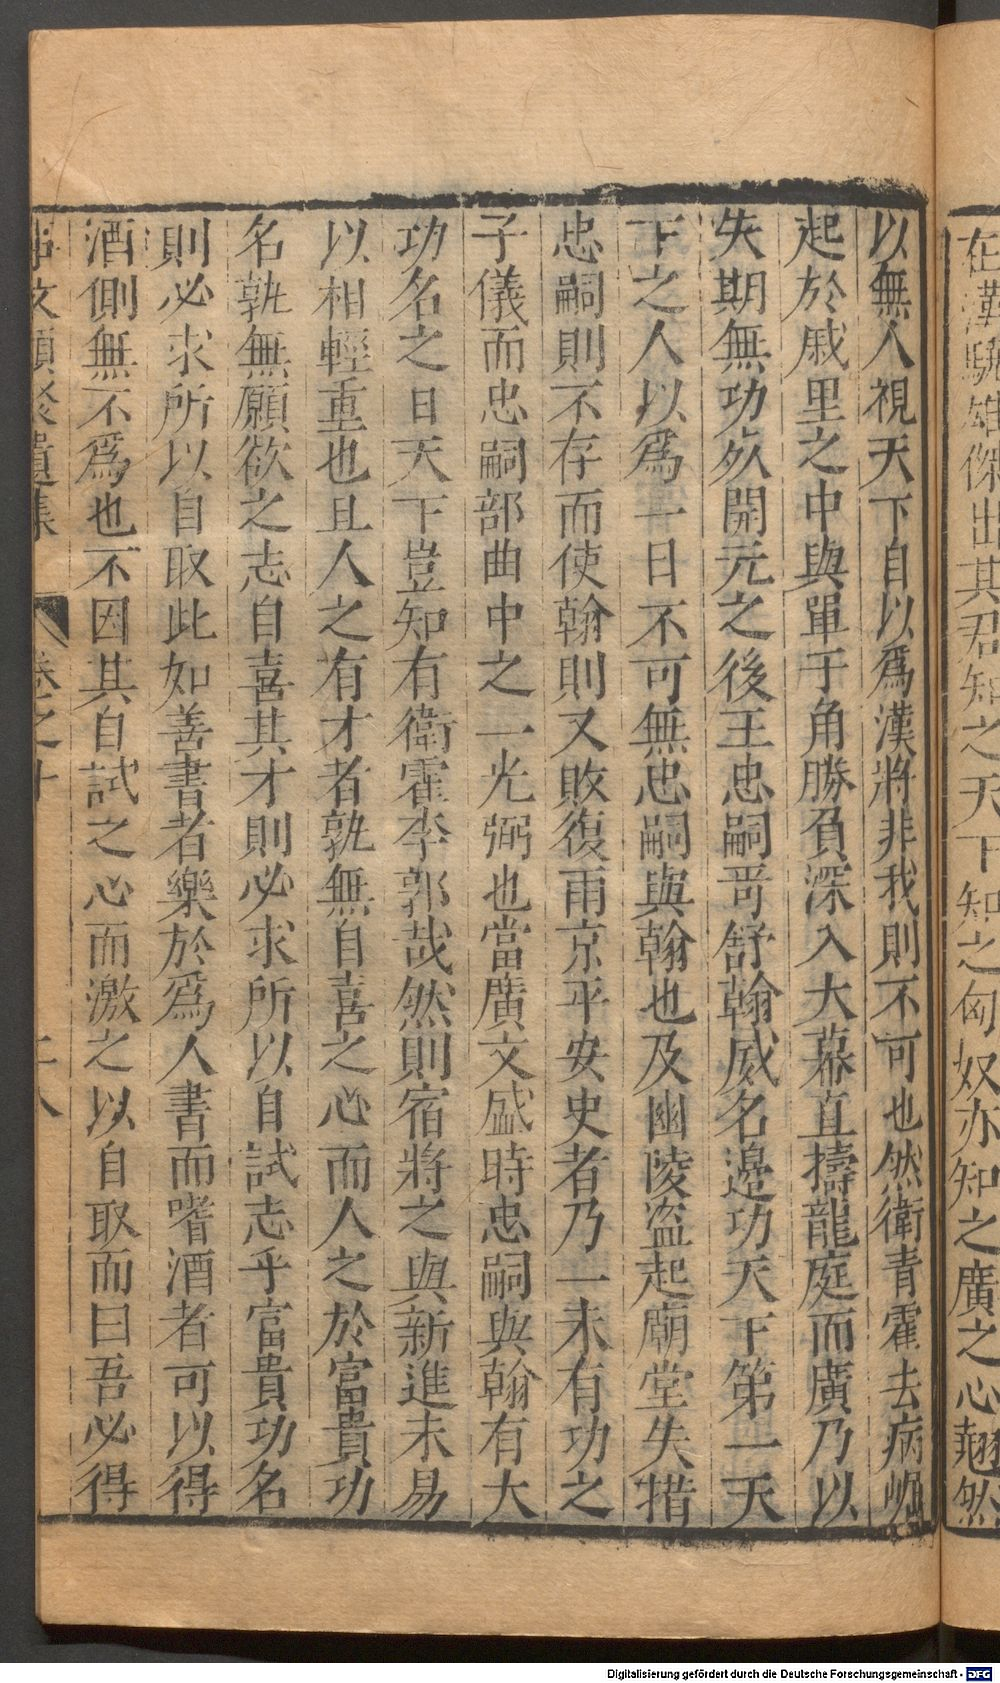 在漢驍雄傑出其君知之天下知之匈奴亦知之廣之心翹然
以無人視天下自以爲漢將非我則不可也然衛青霍去病崛
起於戚里之中與單于角勝負深入大幕直擣龍庭而廣乃以
失期無功歿開元之後王忠嗣哥舒翰威名邊功天下第一天
下之人以爲一日不可無忠嗣與翰也及幽陵盜起廟堂失措
忠嗣則不存而使翰則又敗復兩京平安史者乃一未有功之
子儀而忠嗣部曲中之一光弼也當廣文盛時忠嗣與翰有大
功名之日天下豈知有衛霍李郭哉然則宿將之與新進未易
以相輕重也且人之有才者孰無自喜之心而人之於富貴功
名孰無願欲之志自喜其才則必求所以自試志乎富貴功名
則必求所以自取此如善書者樂於爲人書而嗜酒者可以得
酒側無不爲也不因其自試之心而激之以自取而曰吾必得
事文類聚遺集 卷之十
Digitalisierung gefördert durch die Deutsche Forschungsgemeinschaft - DFG